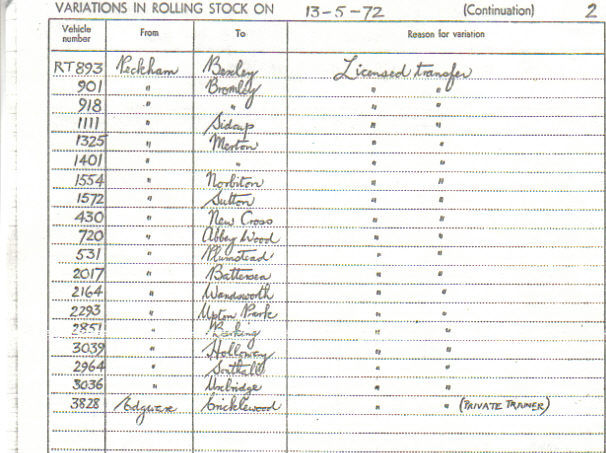 VARIATIONS IN ROLLING STOCK ON 13-5-72 (Continuation) 2
Vehicle number From To Reason for variation
RT893 Peckham Bexley Licensed transfer
901 " Bromley " "
918 " " " "
1111 " Sidcup " "
1325 " Merton " "
1401 " " " "
1554 " Norbiton " "
1572 " Sutton " "
430 " New Cross " "
720 " Abbey Wood " "
531 " Plumstead " "
2017 " Battersea " "
2164 " Wandsworth " "
2293 " Upton Park " "
2851 " Barking " "
3039 " Holloway " "
2964 " Southall " "
3036 " Uxbridge " "
3828 Edgware Cricklewood " " (PRIVATE TRAINER)